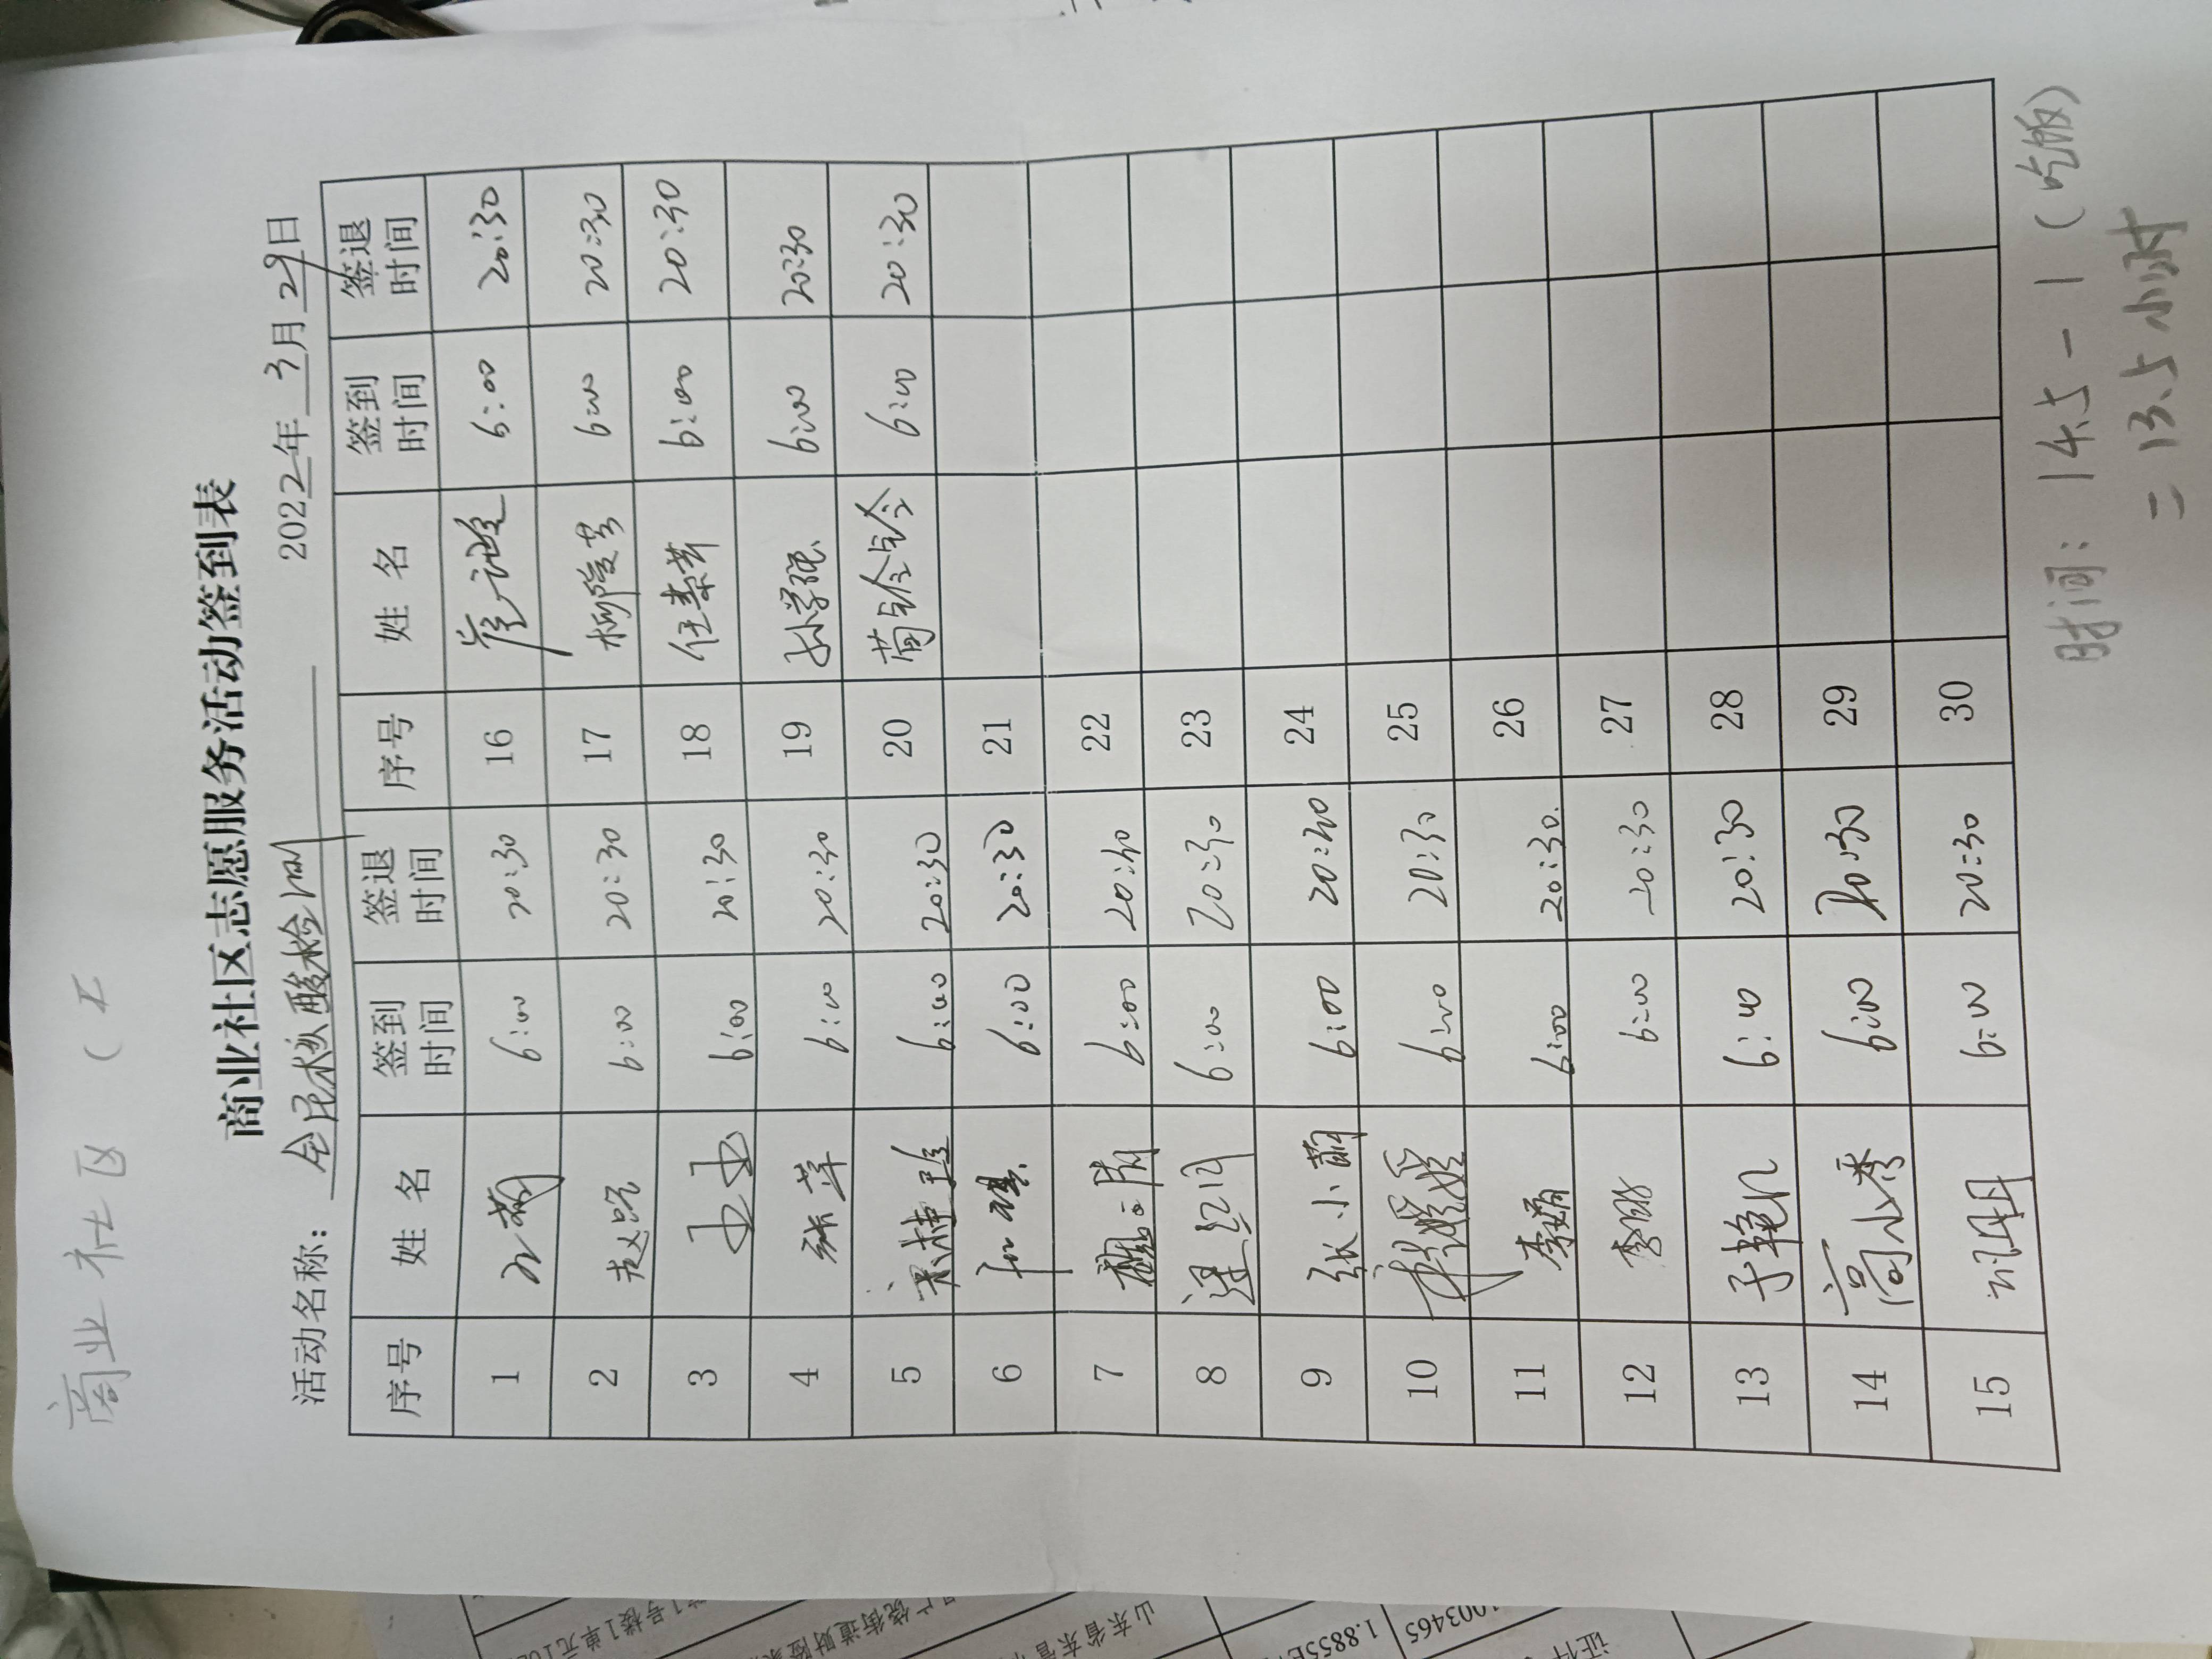 商业社区（工
商业社区志愿服务活动签到表
活动名称：全民核酸检测 2022年3月29日
序号 姓 名 签到时间 签退时间 序号 姓 名 签到时间 签退时间
1 6:00 20:30 16 6:00 20:30
2 6:00 20:30 17 柳俊芳 6:00 20:30
3 6:00 20:30 18 任素芳 6:00 20:30
4 张苹 6:00 20:30 19 孙学强 6:00 20:30
5 6:00 20:30 20 6:00 20:30
6 6:00 20:30 21
7 6:00 20:30 22
8 6:00 20:30 23
9 张小萌 6:00 20:30 24
10 6:00 20:30 25
11 李娟 6:00 20:30. 26
12 6:00 20:30 27
13 于艳 6:00 20:30 28
14 高小秀 6:00 20:30 29
15 6:00 20:30 30
时间：14.5-1（吃饭）
=13.5小时
1003465
1.8855E
证件
山东省东营
广饶街道财险
1号楼1单元10